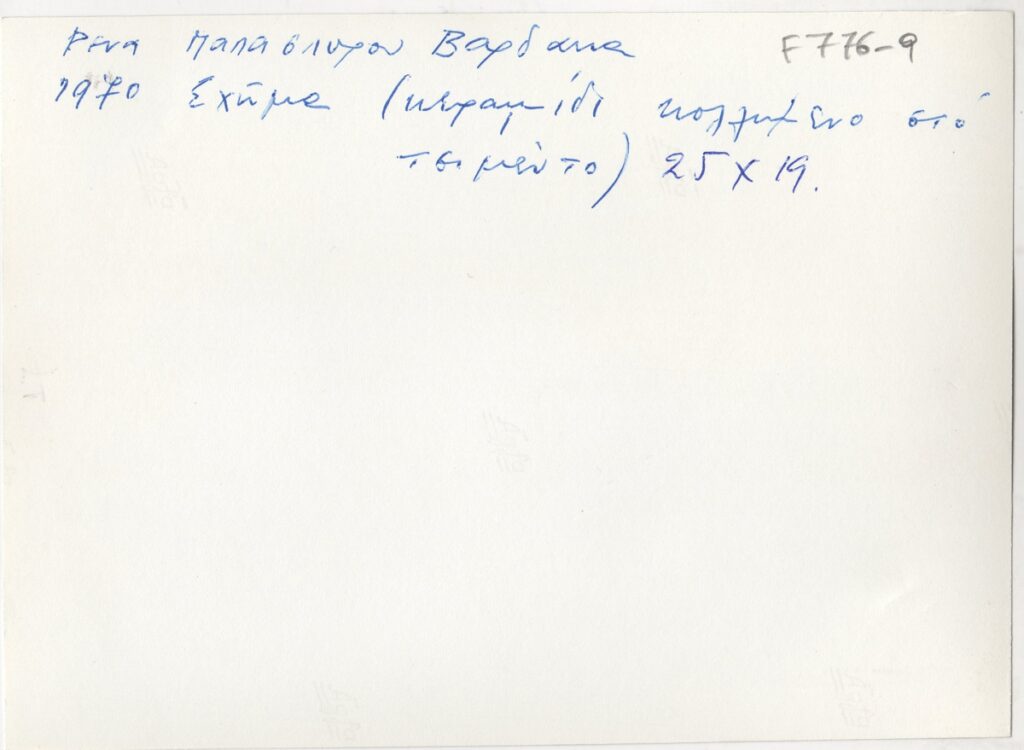 Ρενα Παπασπυρου Βαρδακα F776-9
1970 Σχῆμα (κεραμίδι κολλημένο στό
τσιμέντο) 25 x 19.